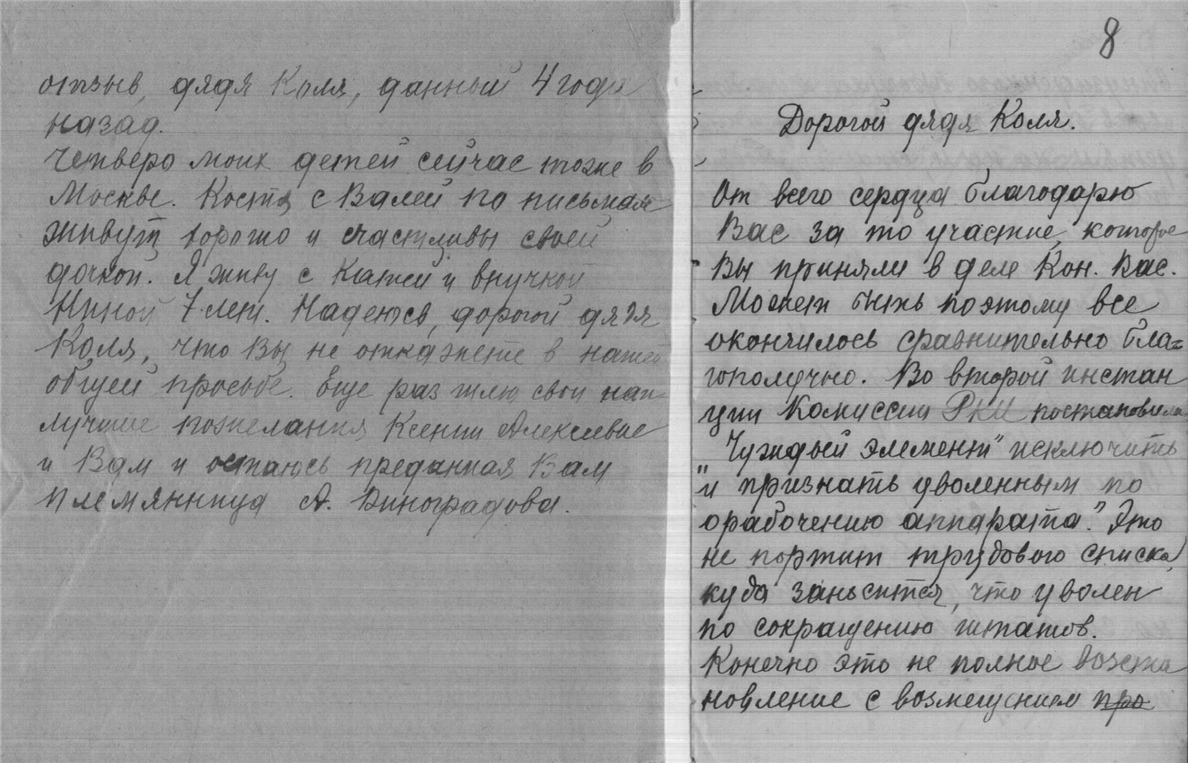 отзыв, дядя Коля, данной 4 года
назад.
Четверо моих детей сейчас тоже в
Москве. Костя с Валей по письмам
живут хорошо и счастливы своей
дочкой. Я живу с Катей и внучкой
Ниной 7 лет. Надеюсь, дорогой дядя
Коля, что Вы не откажете в нашей
общей просьбе. Еще раз шлю свои наи-
лучшие пожелания Ксении Алексеевне
и Вам и остаюсь преданная Вам
племянница А. Виноградова.
8
Дорогой дядя Коля.
От всего сердца благодарю
Вас за то участие, которое
Вы приняли в деле Кон. Вас.
Может быть поэтому все
окончилось сравнительно бла=
гополучно. Во второй инстан
ции Комиссии РКИ постановила
"Чуждый элемент" исключить
"и признать уволенным по
орабочению аппарата." Это
не портит трудового списка,
куда заносится, что уволен
по сокращению штатов.
Конечно это не полное возста
новление с возмещением про